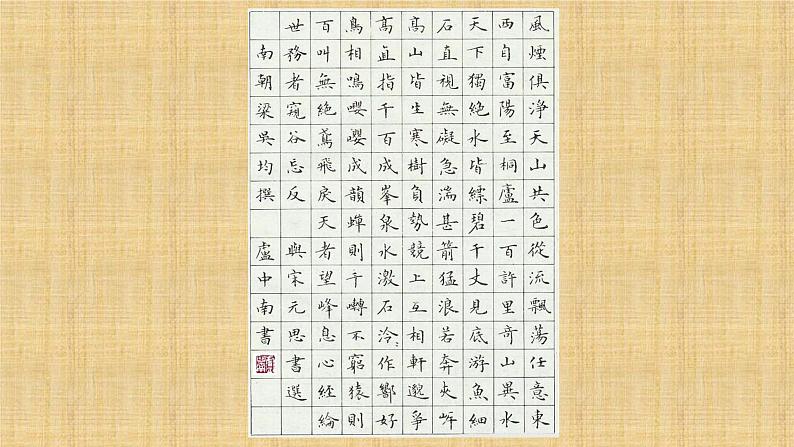 風煙俱淨天山共色從流飄蕩任意東
西自富陽至桐廬一百許里奇山異水
天下獨絕水皆縹碧千丈見底游魚細
石直視無礙急湍甚箭猛浪若奔夾岸
高山皆生寒樹負勢競上互相軒邈爭
高直指千百成峯泉水激石泠〻作響好
鳥相鳴嚶嚶成韻蟬則千囀不窮猿則
百叫無絕鳶飛戾天者望峰息心經綸
世務者窺谷忘反 與宋元思書選
南朝梁吳均撰 盧中南書